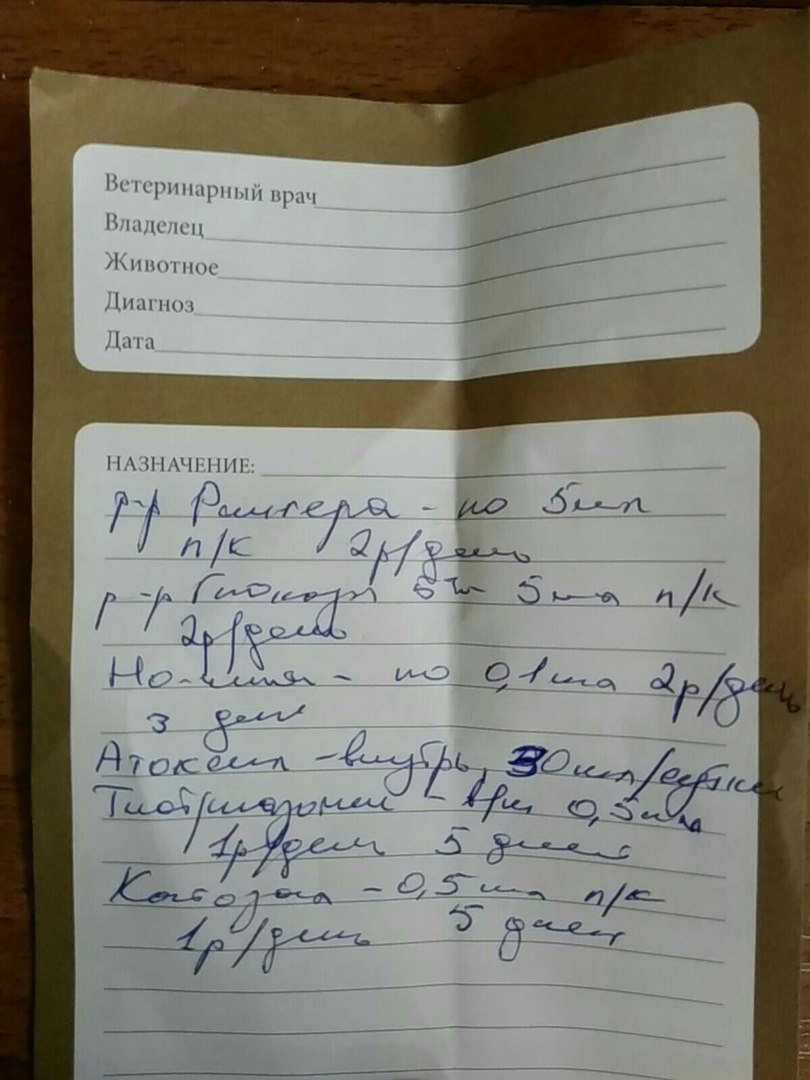 Ветеринарный врач
Владелец
Животное
Диагноз
Дата
НАЗНАЧЕНИЕ:
р-р Рингера - по 5 мл
п/к 2р/день
р-р Глюкозы 5% 5 мл п/к
2р/день
Но-шпа - по 0,1 мл 2р/день
3 дня
Атоксил - внутрь, 30 мл/сутки
Тиотриазолин - в/м 0,5 мл
1р/день 5 дней
Катозал - 0,5 мл п/к
1р/день 5 дней